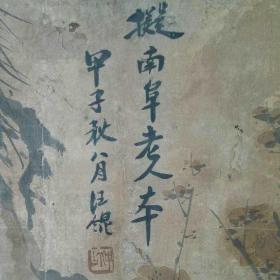 擬南阜老人本
甲子秋八月汪琨